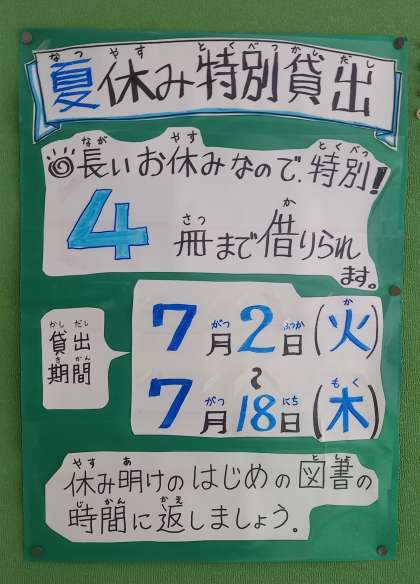 夏休み特別貸出
長いお休みなので、特別!
4冊まで借りられ
ます。
貸出
期間
7月2日(火)
~
7月18日(木)
休み明けのはじめの図書の
時間に返しましょう。